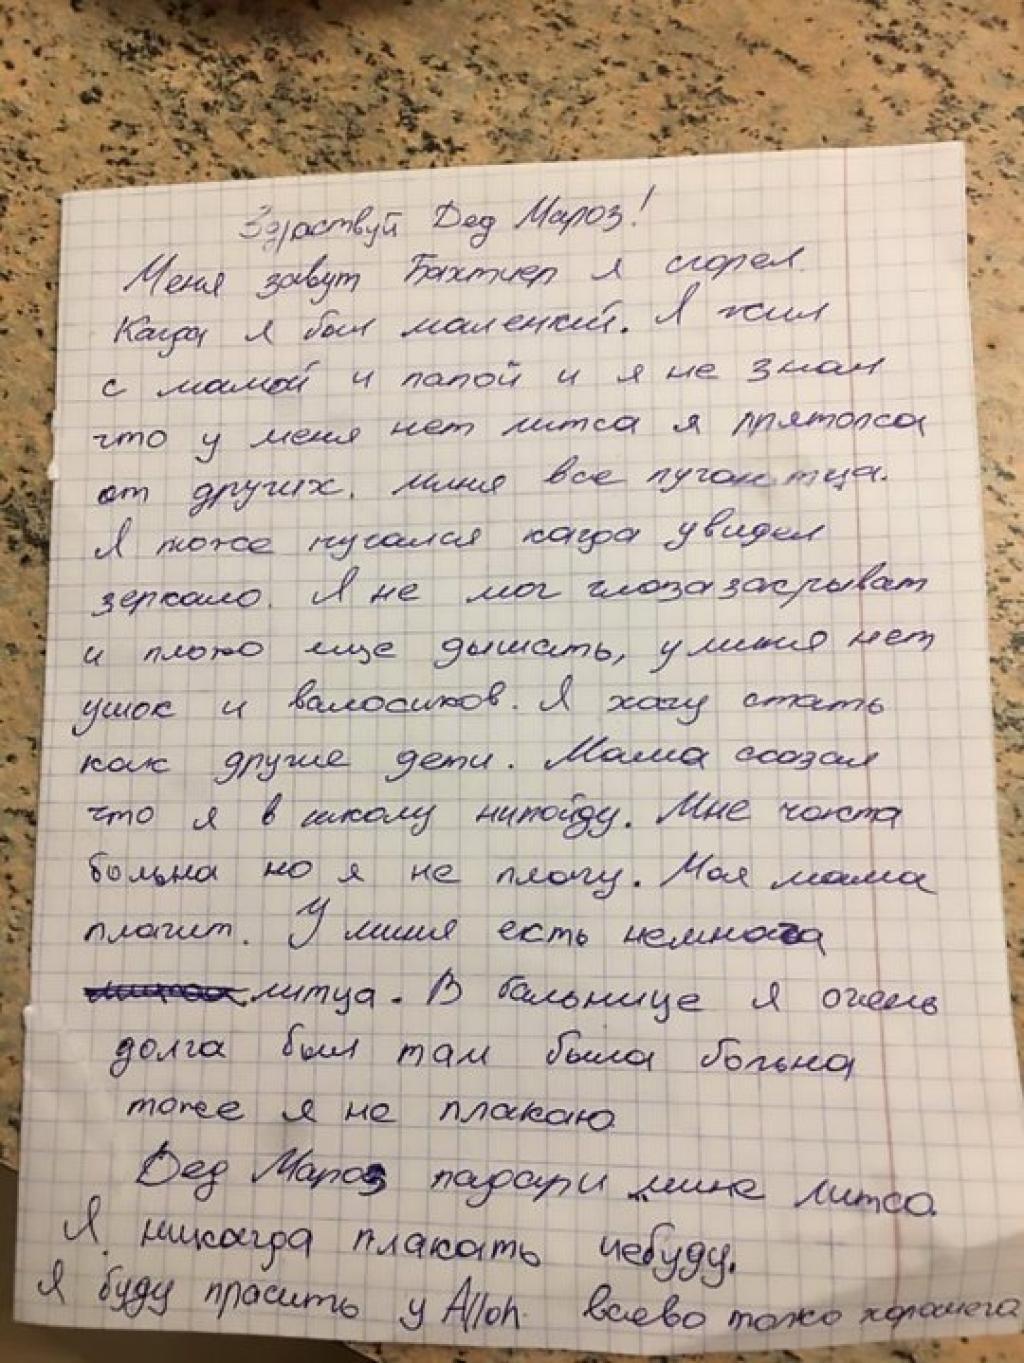 Здраствуй Дед Мароз!
Меня завут Бахтиер я сгорел.
Кагда я был маленкий. Я жил
с мамой и папой и я не знал
что у меня нет литса я пряталса
от других. миня все пугаютца.
Я тоже пугался кагда увидел
зеркало. Я не мог глоза закрыват
и плохо еще дышать, у миня нет
ушок и валосиков. Я хачу стать
как другие дети. Мама сказал
что я в школу нипойду. Мне часта
больна но я не плачу. Моя мама
плачит. У миня есть немнога
литца. В бальнице я очень
долга был там была больна
тоже я не плакаю
Дед Мароз падари мине литсо.
Я никагда плакать небуду.
Я буду прасить у Alloh всево токо харошего